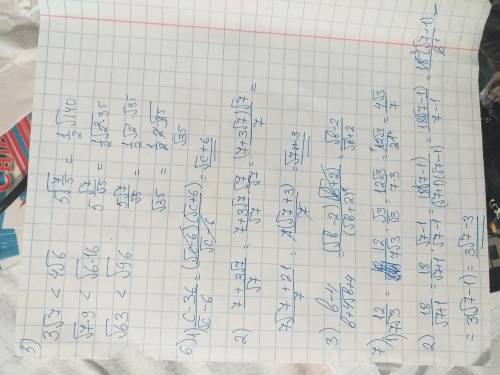 5)
3√7 < 4√6
√7·9 < √6·16
√63 < √96
5√7/5 = 1/2 √140
5√7/√5 = 1/2 √2²·35
5√7/√5 = 1/2 √2² · √35
√35 = 1/2 · 2 √35
√35
6) 1) c-36/√c-6 = (√c-6)(√c+6)/√c-6 = √c+6
2) 7+3√7/√7 = 7+3√7·√7/√7·√7 = (7+3√7)√7/7 =
7√7+21/7 = 7(√7+3)/7 = √7+3
3) b-4/b+4√b+4 = (√b-2)(√b+2)/(√b+2)² = √b-2/√b+2
7) 1) 12/7√3 = 12·√3/7√3·√3 = 12√3/7·3 = 12√3/21 = 4√3/7
2) 18/√7+1 = 18·√7-1/√7+1·√7-1 = 18(√7-1)/(√7+1)(√7-1) = 18(√7-1)/7-1 = 18³(√7-1)/6¹ =
= 3(√7-1) = 3√7-3